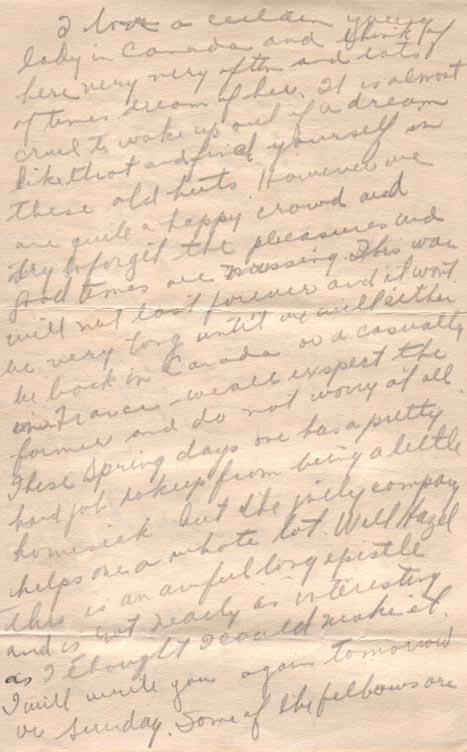 I love a certain young
lady in Canada and think of
here very very often and lots
of times dream of her. It is almost
cruel to wake up out of a dream
like that and find yourself in
these old huts. However we
are quite a happy crowd and
try to forget the pleasures and
good times we missing. This war
will not last forever and it wont
be very long until we will either
be back in Canada or a casualty
in France - we all expect the
former and do not worry at all
These Spring days one has a pretty
hard job to keep from being a little
homesick but the jolly company
helps one a whole lot. Well Hazel
this is an awful long epistle
and is not nearly as interesting
as I thought I could make it.
I will write you again tomorrow
or Sunday. Some of the fellows are